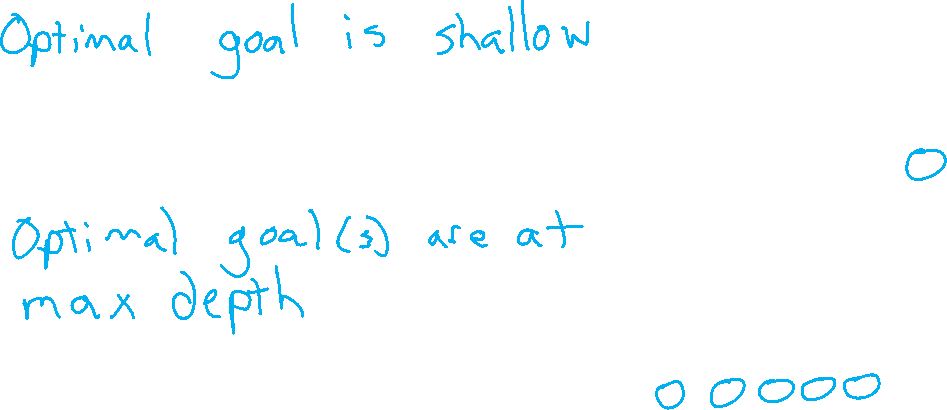 Optimal goal is shallow
Optimal goal(s) are at
max depth